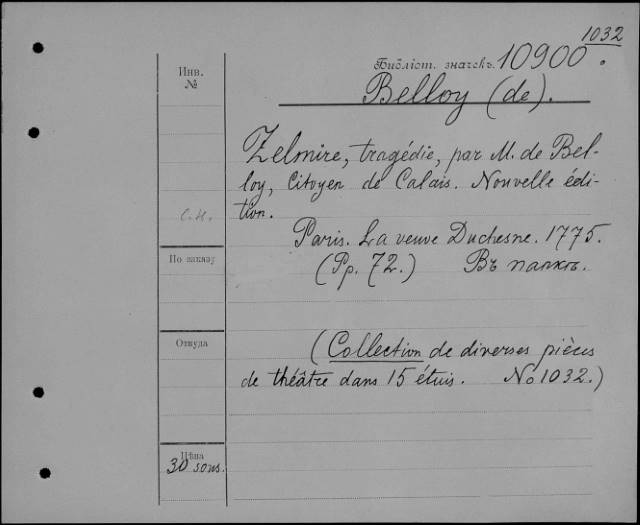 1032
Инв.
№
Библіот. значекъ. 10900.
Belloy (de).
Zelmire, tragédie, par M. de Bel-
loy, Citoyen de Calais. Nouvelle édi-
tion.
С.Н.
Paris. La veuve Duchesne. 1775.
По заказу
(Pp. 72.) Въ папкѣ.
Откуда
(Collection de diverses pièces
de théâtre dans 15 étuis. No 1032.)
Цѣна
30 sous.